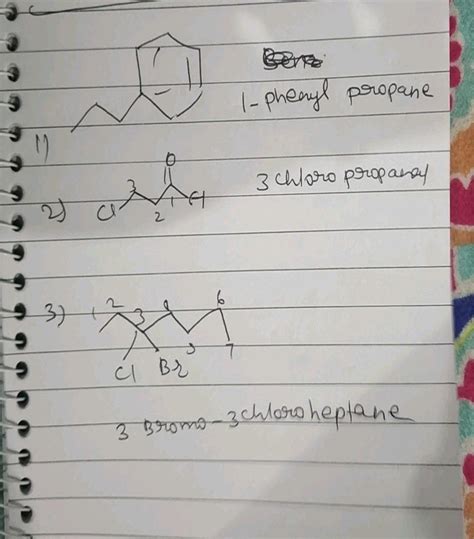 1-phenyl propane
1)
O
3
Cl 1 Cl
2) 2
3 chloro propanoyl
3) 1 2 3 4 5 6 7
Cl Br
3 Bromo-3chloroheptane